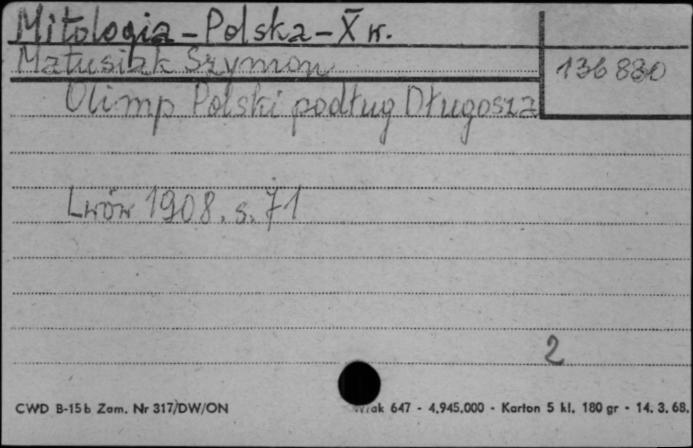 Mitologia - Polska - X w.
Matusiak Szymon
136 830
Olimp Polski podług Długosza
Lwów 1908. s. 71
2
CWD B-15b Zam. Nr 317/DW/ON
647 - 4.945.000 - Karton 5 kl. 180 gr - 14. 3. 68.